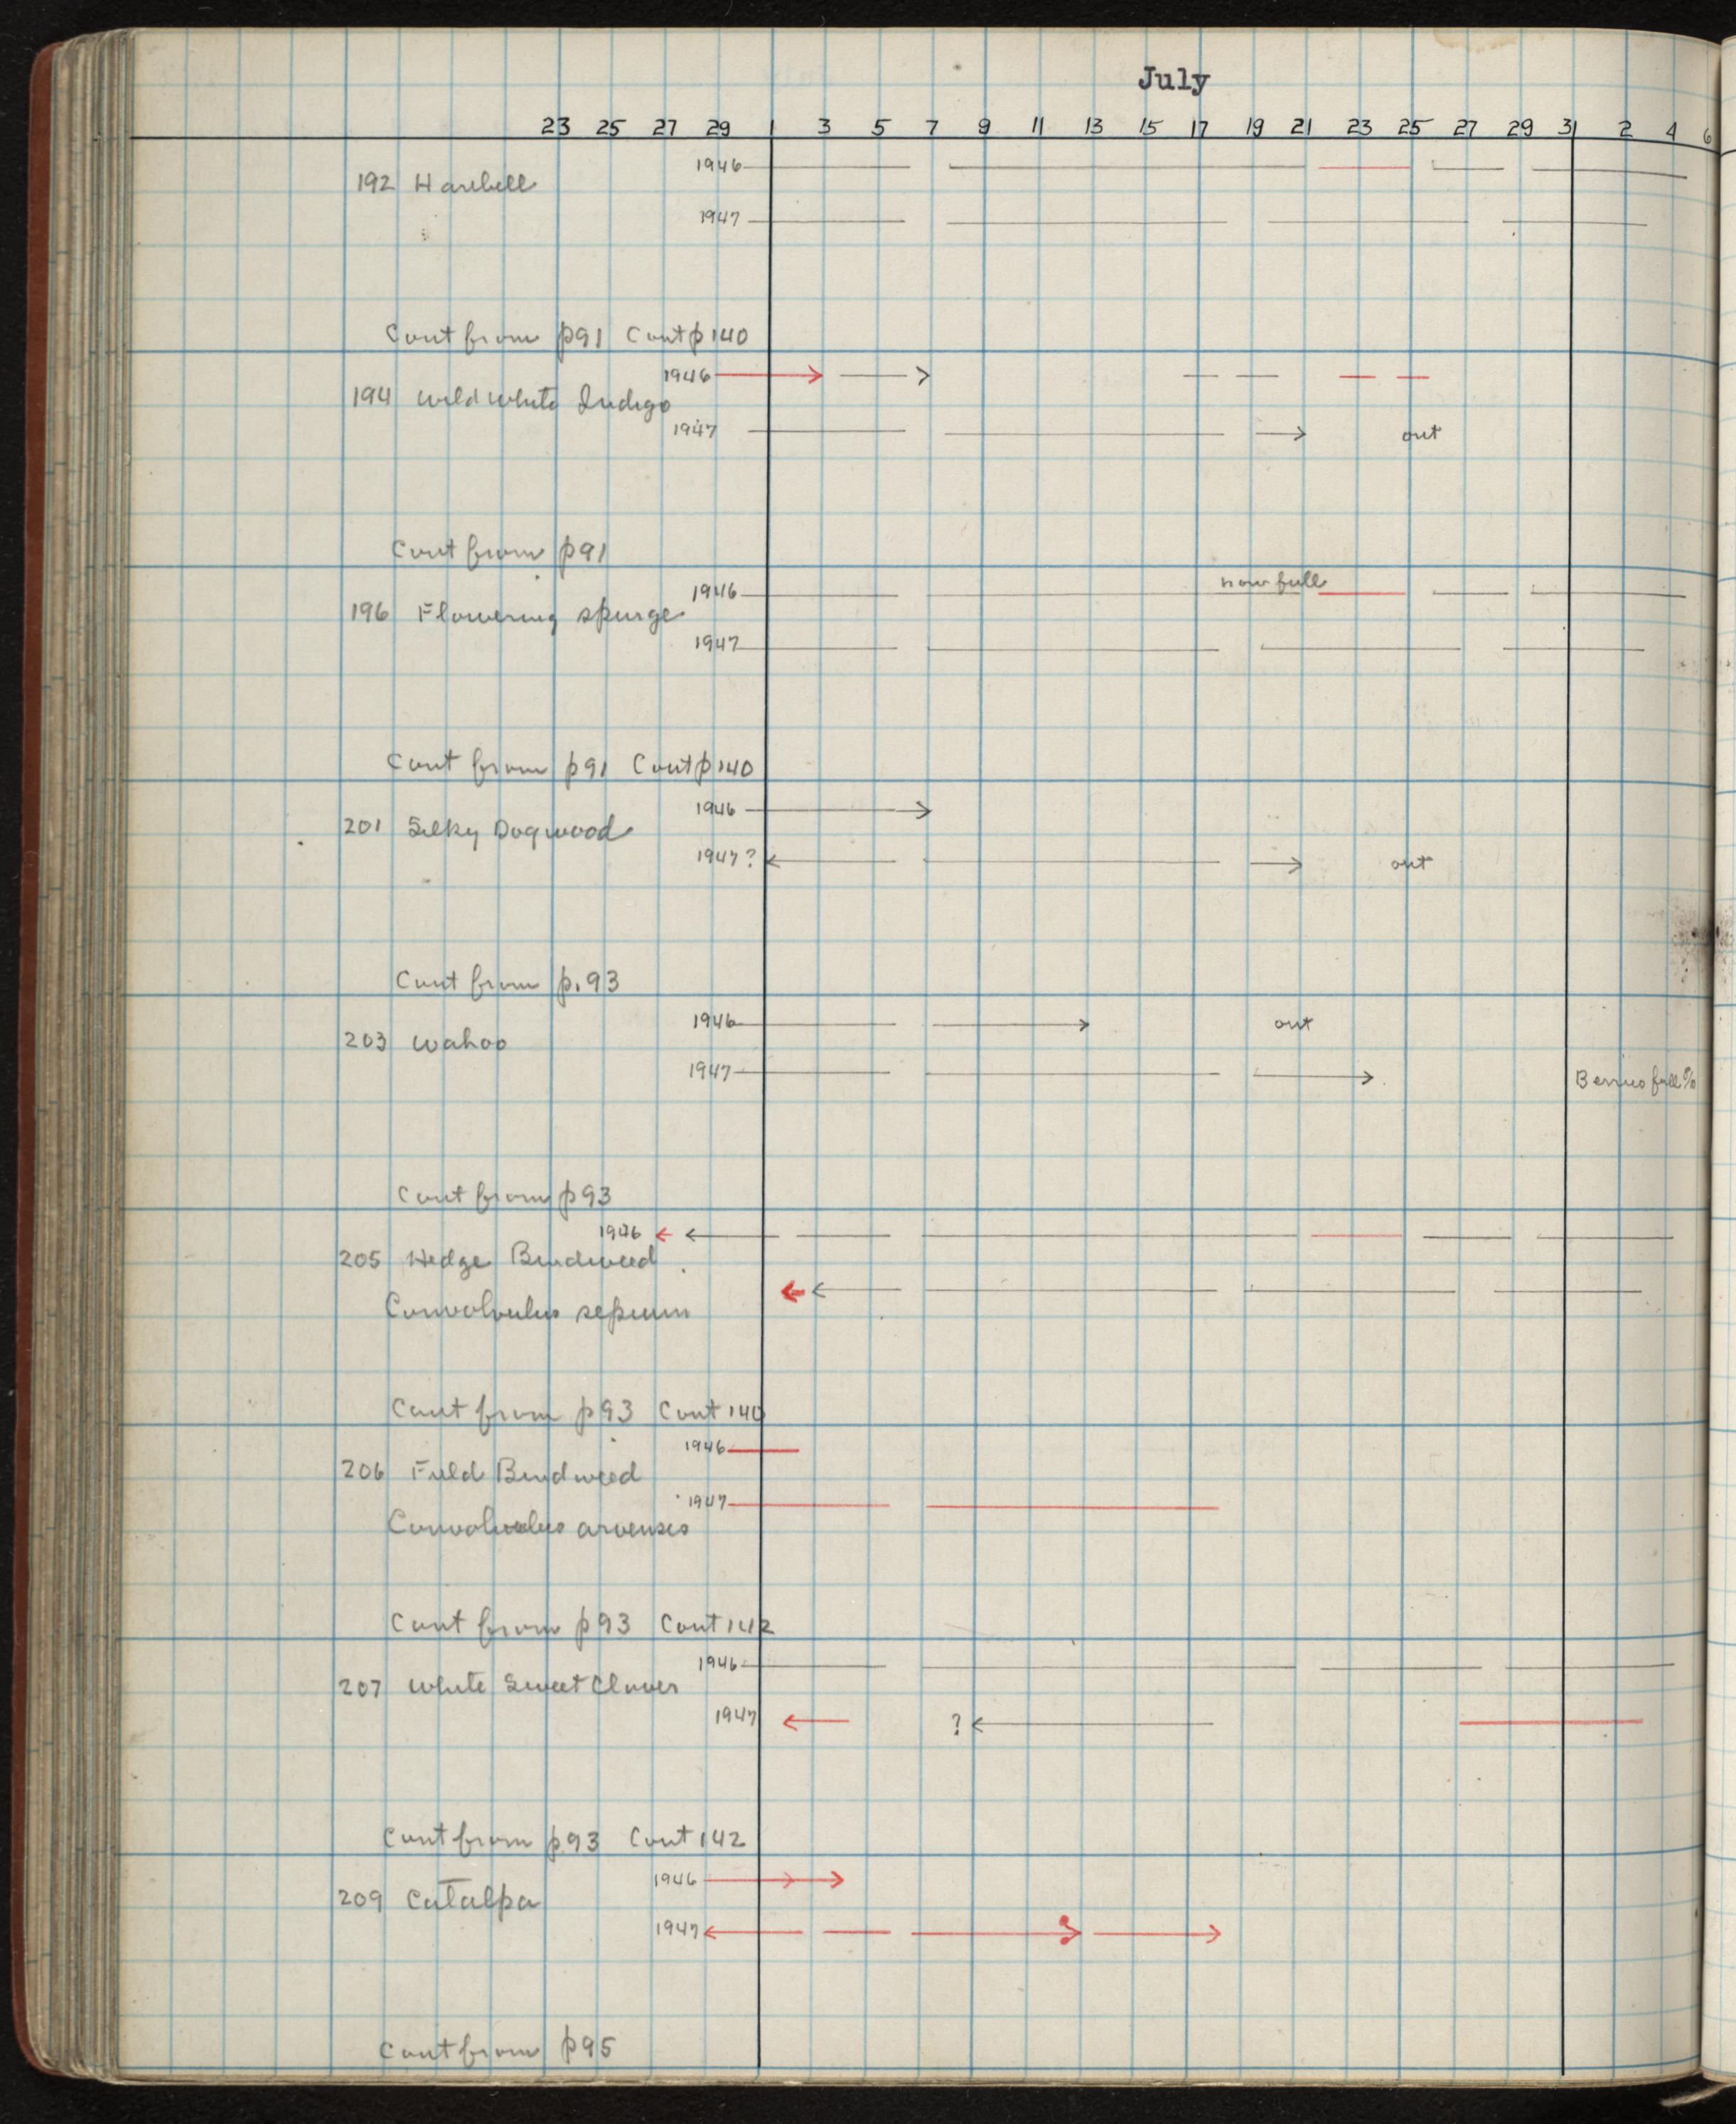 July
23 25 27 29 1 3 5 7 9 11 13 15 17 19 21 23 25 27 29 31 2 4 6
1946
192 Harebell
1947
Cont from p91 Cont p140
1946
194 Wild White Indigo
1947 out
Cont from p91
now full
1946
196 Flowering spurge
1947
Cont from p91 Cont p140
1946
201 Silky Dogwood
1947? out
Cont from p.93
1946 out
203 Wahoo
1947 Berries full %
Cont from p93
1946
205 Hedge Bindweed
Convolvulus sepium
Cont from p93 Cont 140
1946
206 Field Bindweed
1947
Convolvulus arvensis
Cont from p93 Cont 142
1946
207 White Sweet Clover
1947 ?
Cont from p.93 Cont 142
1946
209 Catalpa
1947
Cont from p95